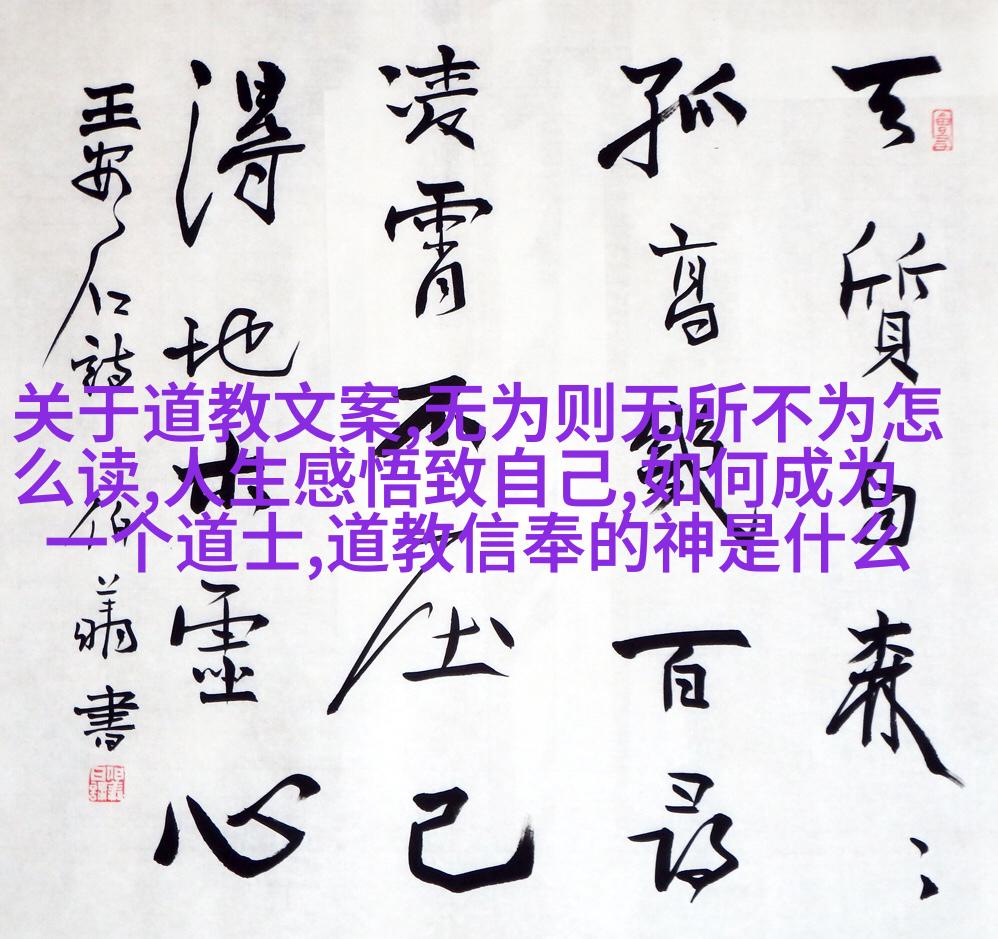 天質自森〻
孤高幾百尋
凌霄不屈己
得地本靈心
王安 詩 書
关于道教文案,无为则无所不为怎
么读,人生感悟致自己,如何成为
一个道士,道教信奉的神是什么